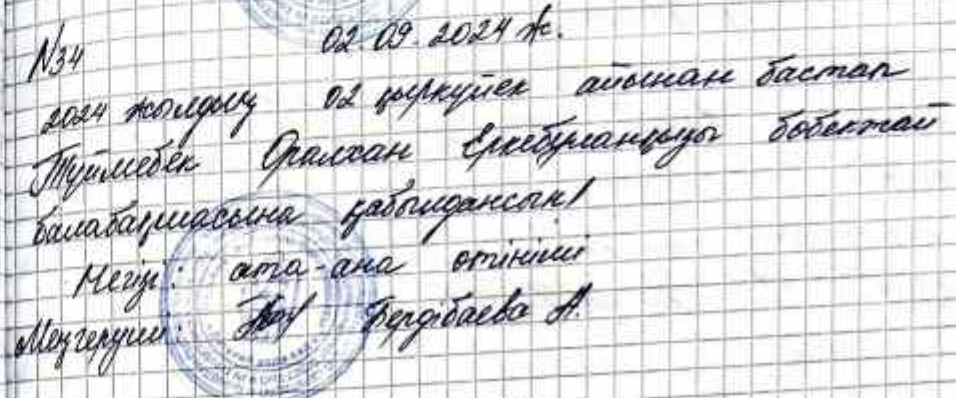 №34 02.09.2024 ж.
2024 жылдың 02 қыркүйек айынан бастап
Түймебек Оралхан Еркебұланқызы бөбекжай
балабақшасына қабылдансын!
Негізі: ата-ана өтініші
Меңгеруші: Бердібаева А.